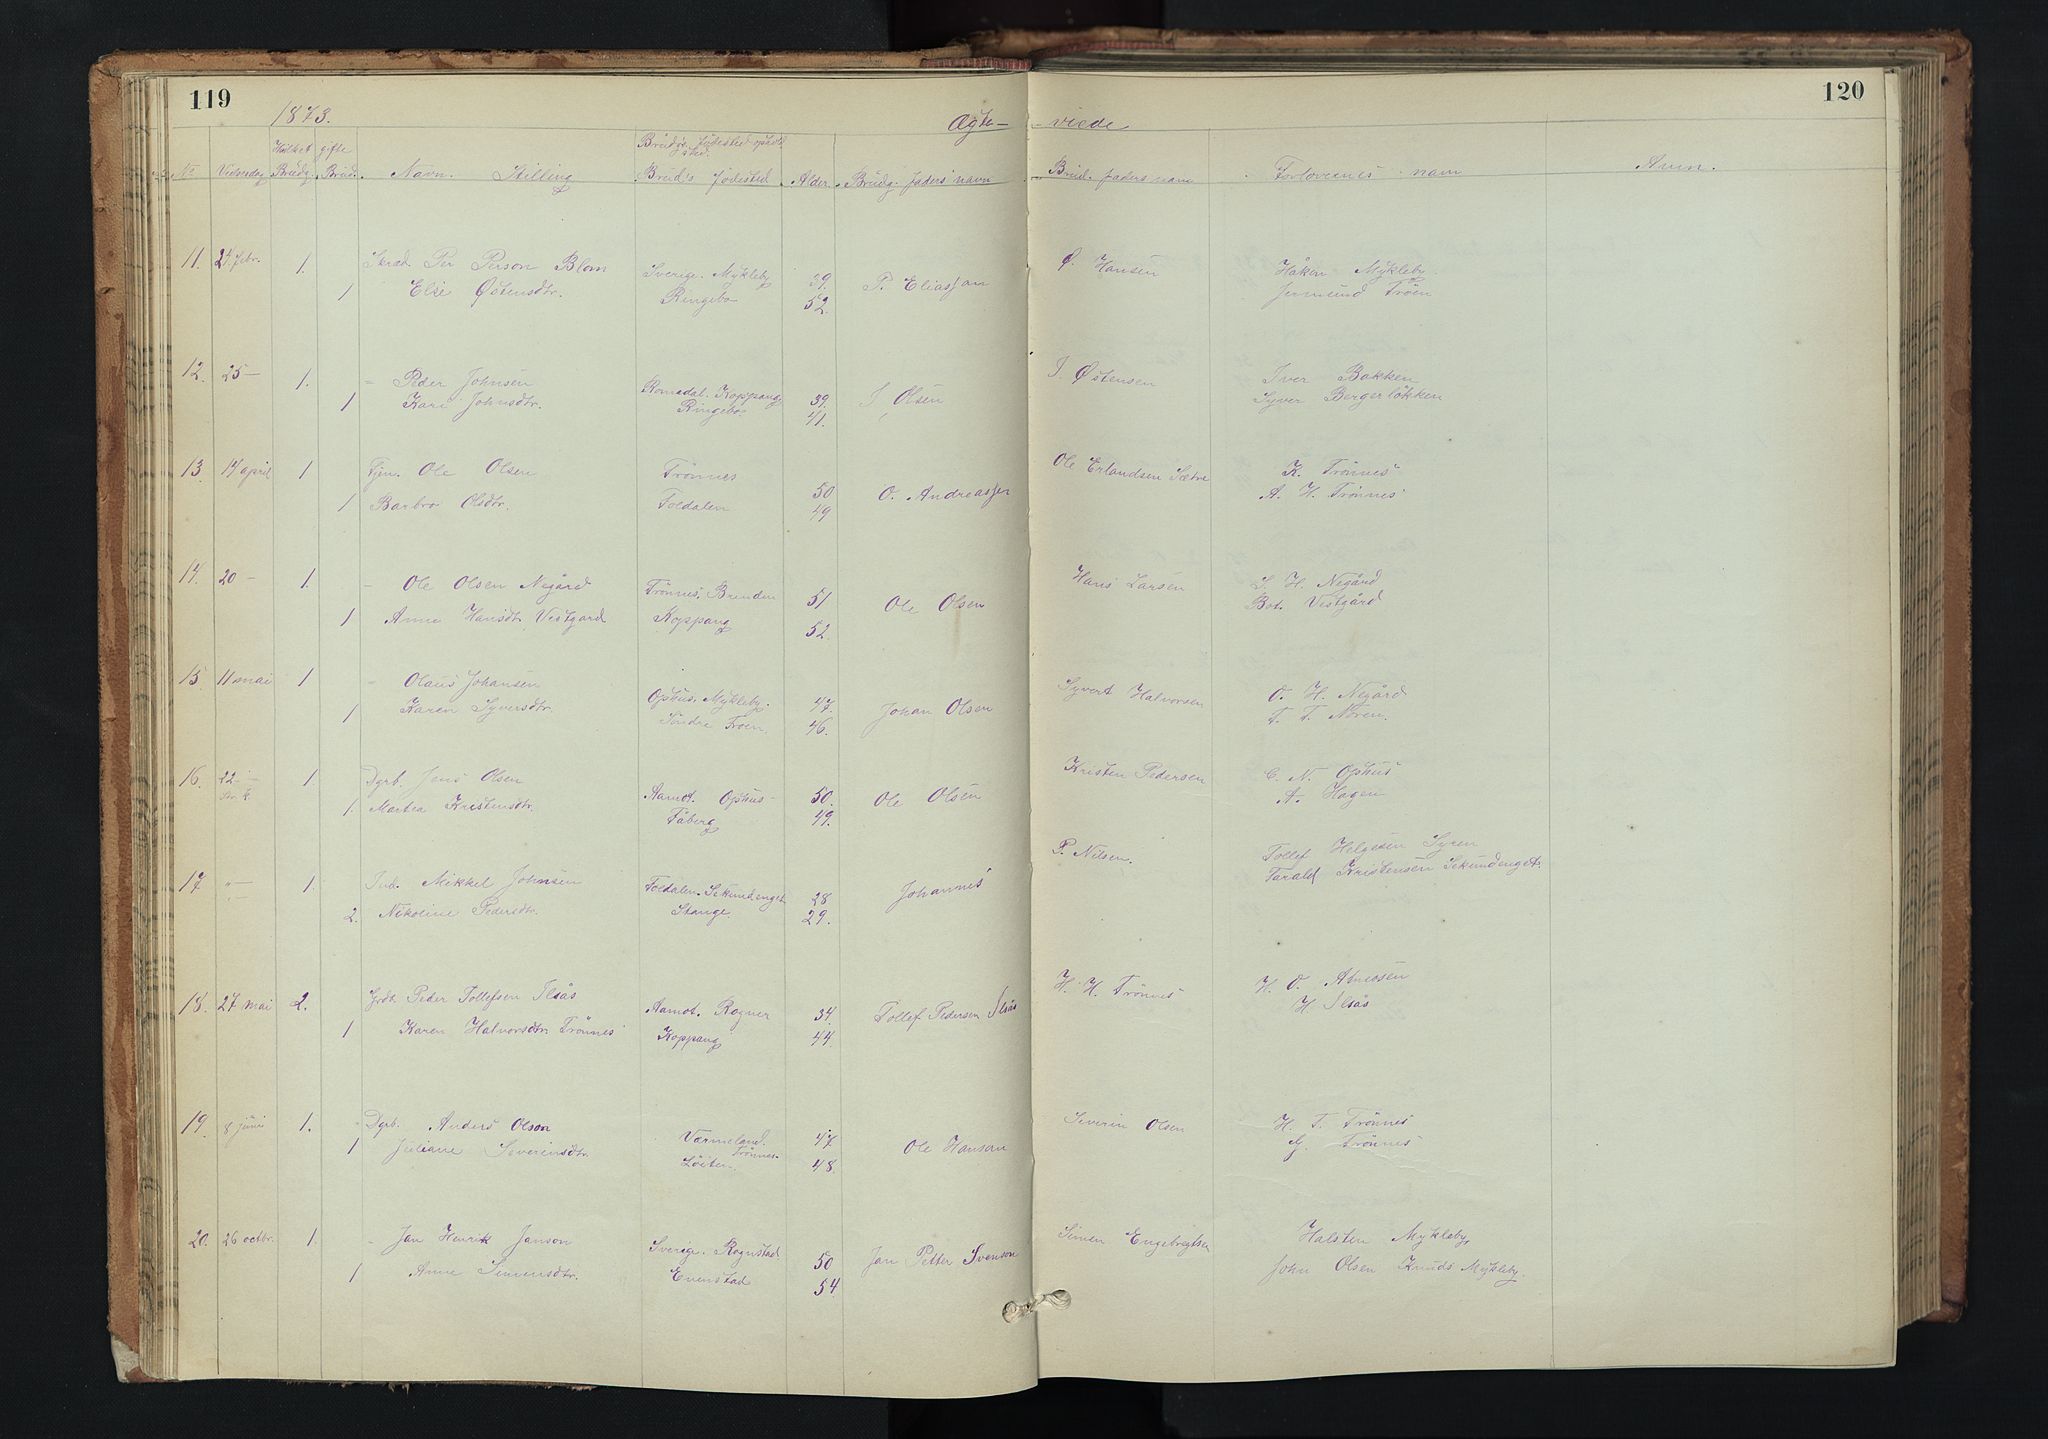 119
120
1873.
Ægte-
viede
Hvilket gifte
Brudgs. fødested ophold
sted.
No
Vielsesdag
Brudg.
Brud.
Navn. Stilling
Bruds fødested
Alder.
Brudg. faders navn
Brud. faders navn
Forlovernes navn
Anm.
11. 24 febr. 1. Skræd. Per Person Blom Sverige. Mykleby 39. P. Eliasson Ø. Hansen Håken Mykleby
1 Else Østensdtr. Ringebo 52. Jermund Trøen
12. 25 — 1. – Peder Johnsen Romedal. Koppang 39. J. Olsen J. Østensen Iver Bakken
1 Kari Johnsdtr. Ringebo 41. Syver Bergerløkken
13. 14 april 1 Tjen. Ole Olsen Trønnes 50 O. Andreassen Ole Erlandsen Sætre K. Trønnes
1 Barbro Olsdtr. Foldalen 49 A. H. Trønnes
14. 20 – 1. – Ole Olsen Negård Trønnes, Brenden 51 Ole Olsen Hans Larsen L. H. Negård
1 Anne Hansdtr Vestgard Koppang 52. Bot. Vestgård
15. 11 mai 1 – Olaus Johansen Ophus. Mykleby. 47. Johan Olsen Syvert Halvorsen O. H. Negård
1 Karen Syversdtr. Søndre Trøen. 46. T. T. Nøren.
16. 22 — 1. Dgrb. Jens Olsen Aamot. Ophus – 50. Ole Olsen Kristen Pedersen C. N. Ophus
1. Martea Kristensdtr. Fåberg 49. A. Hagen
17 "— 1. Ind. Mikkel Johnsen Foldalen. Sekundenget 28 Johannes P. Nilsen. Tollef Helgesen Syren
2. Nikoline Pedersdtr. Stange 29. Tarald Kristensen Sekundenget.
18. 27 mai 2. Grdb. Peder Tollefsen Ilsås Aamot. Rogner 34. Tollef Pedersen Ilsås H. H. Trønnes H. O. Atneosen
1 Karen Halvorsdtr Trønnes Koppang 44. H. Ilsås
19. 8 juni 1. Dgrb. Anders Olson Værmeland. 47 Ole Hanson Severin Olsen H. T. Trønnes
Trønnes.
1 Juliane Severinsdtr. Løiten. 48. G. Trønnes
20. 26 octbr. 1. – Jan Henrik Janson Sverige. Rognstad 50 Jan Petter Svenson Simen Engebregtsen Halsten Mykleby,
1 Anne Simensdtr. Evenstad 54 John Olsen Knuds Mykleby.